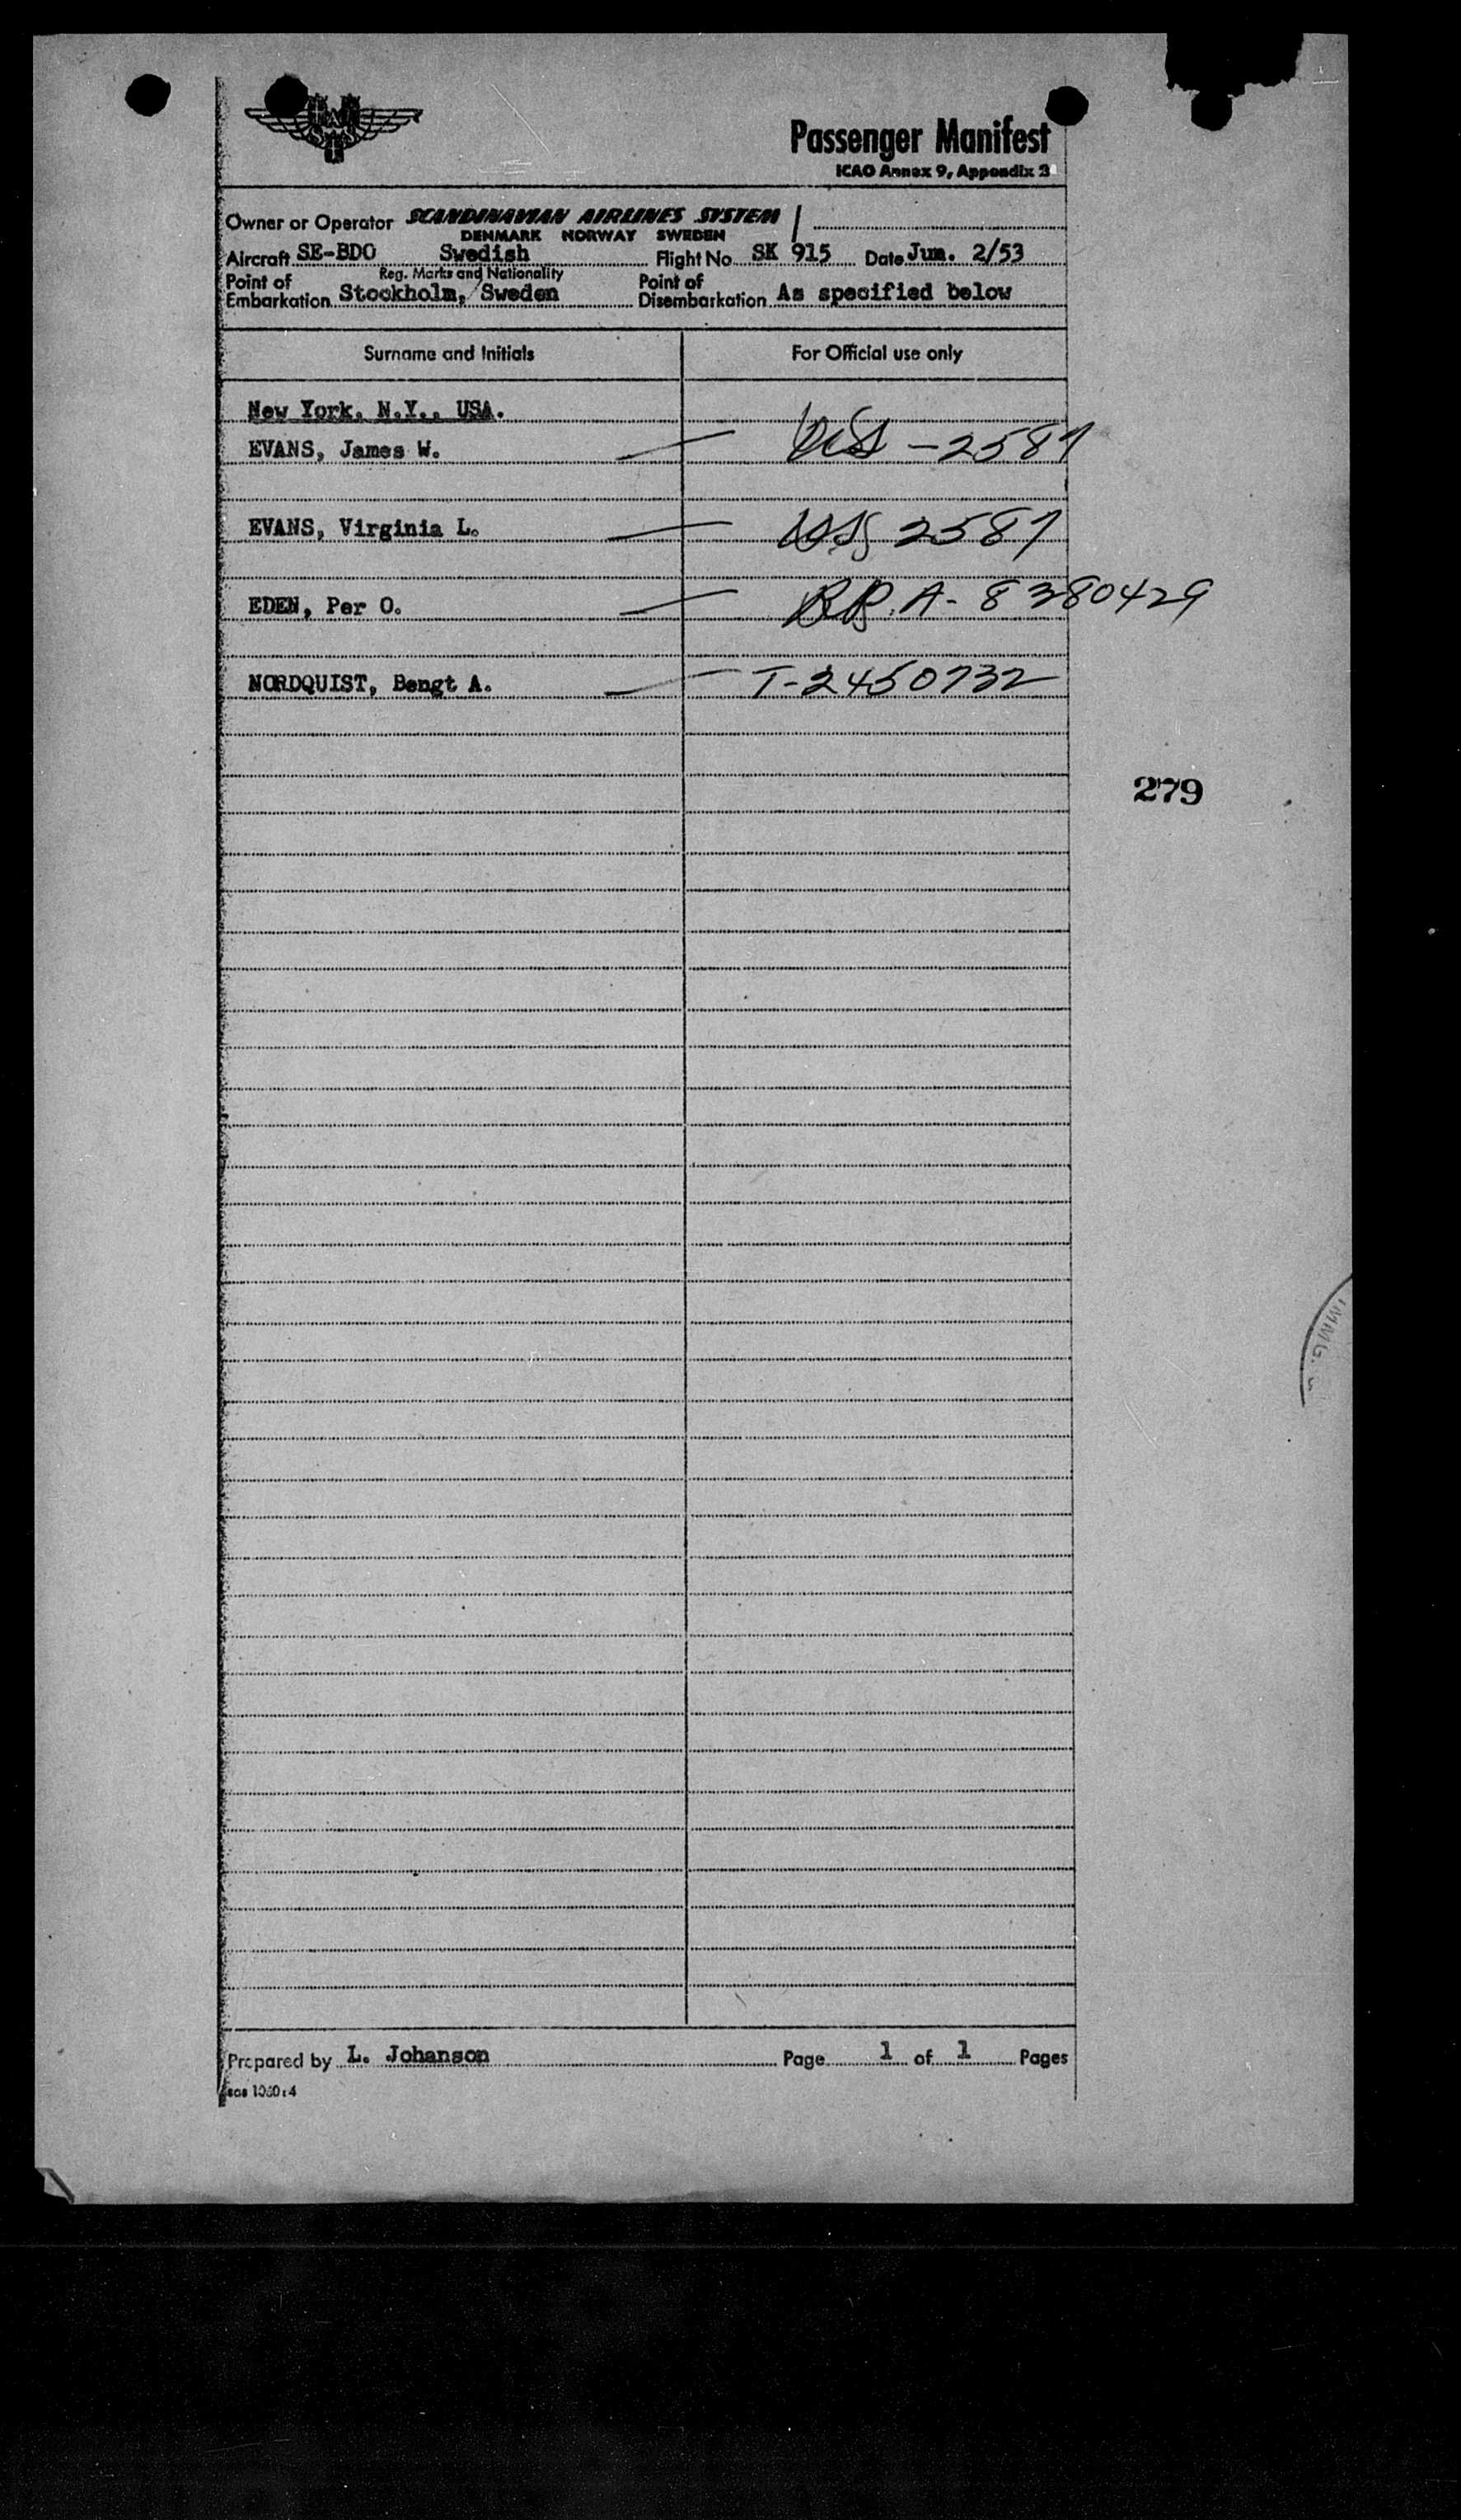 Passenger Manifest
ICAO Annex 9, Appendix 3
Owner or Operator SCANDINAVIAN AIRLINES SYSTEM
DENMARK NORWAY SWEDEN
Aircraft SE-BDO Swedish Flight No SK 915 Date Jun. 2/53
Reg. Marks and Nationality
Point of Embarkation Stockholm, Sweden Point of Disembarkation As specified below
Surname and Initials For Official use only
New York, N.Y., USA.
EVANS, James W. — USA - 2587
EVANS, Virginia L. — 2587
EDEN, Per O. — A-8380429
NORDQUIST, Bengt A. — T-2450732
279
IMMG.
Prepared by L. Johanson Page 1 of 1 Pages